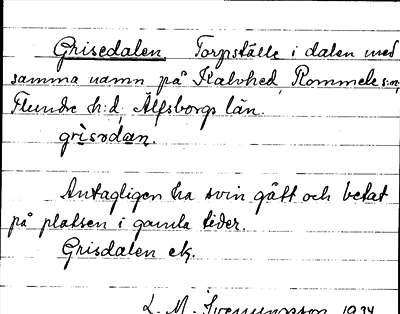 Grisedalen Torpställe i dalen med
samma namn på Kalvhed, Rommele s:n,
Flundre h:d, Älfsborgs län.
grisədan.
Antagligen ha svin gått och betat
på platsen i gamla tider.
Grisdalen ek.
L. M. Svenungsson 1934